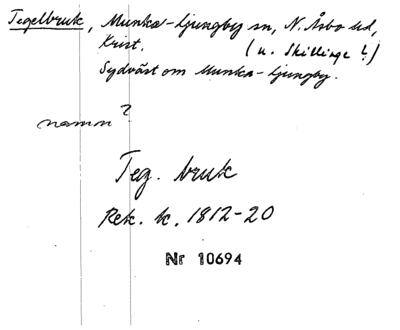 Tegelbruk, Munka-Ljungby sn, N. Åsbo hd,
Krist. (u. Skillinge ?)
Sydväst om Munka-Ljungby.
namn ?
Teg. bruk
Rek. k. 1812-20
Nr 10694